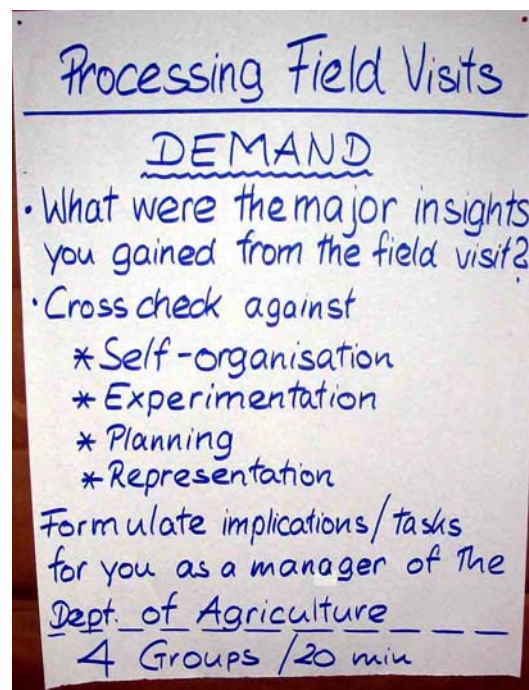 Processing Field Visits
DEMAND
• What were the major insights
you gained from the field visit?
• Cross check against
* Self-organisation
* Experimentation
* Planning
* Representation
Formulate implications/tasks
for you as a manager of the
Dept. of Agriculture
4 Groups /20 min